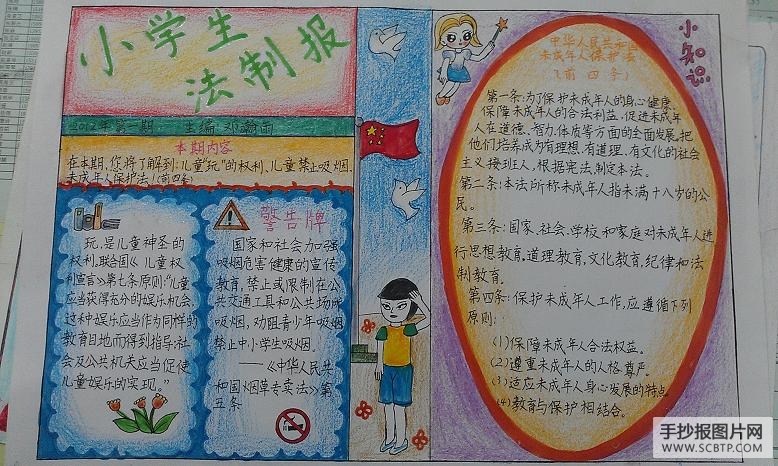 小学生
法制报
2012年第一期 主编 邓瀚雨
本期内容
在本期,您将了解到:儿童"玩"的权利、儿童禁止吸烟、
未成年人保护法(前四条)
玩,是儿童神圣的
权利,联合国《儿童权
利宣言》第七条原则:"儿童
应当获得充分的娱乐机会,
这种娱乐应当作为同样的
教育目地而得到指导;社
会及公共机关应当促使
儿童娱乐的实现。"
警告牌
国家和社会加强
吸烟危害健康的宣传
教育,禁止或限制在公
共交通工具和公共场所
吸烟,劝阻青少年吸烟,
禁止中小学生吸烟。
——《中华人民共
和国烟草专卖法》第
五条
小知识
中华人民共和国
未成年人保护法
(前四条)
第一条:为了保护未成年人的身心健康,
保障未成年人的合法利益,促进未成年
人在道德、智力、体质等方面的全面发展,把
他们培养成为有理想、有道理、有文化的社会
主义接班人,根据宪法,制定本法。
第二条:本法所称未成年人指未满十八岁的公
民。
第三条:国家、社会、学校和家庭对未成年人进
行思想教育,道理教育,文化教育,纪律和法
制教育。
第四条:保护未成年人工作,应遵循下列
原则:
(1)保障未成年人合法权益。
(2)尊重未成年人的人格尊严。
(3)适应未成年人身心发展的特点。
(4)教育与保护相结合。
手抄报图片网
WWW.SCBTP.COM